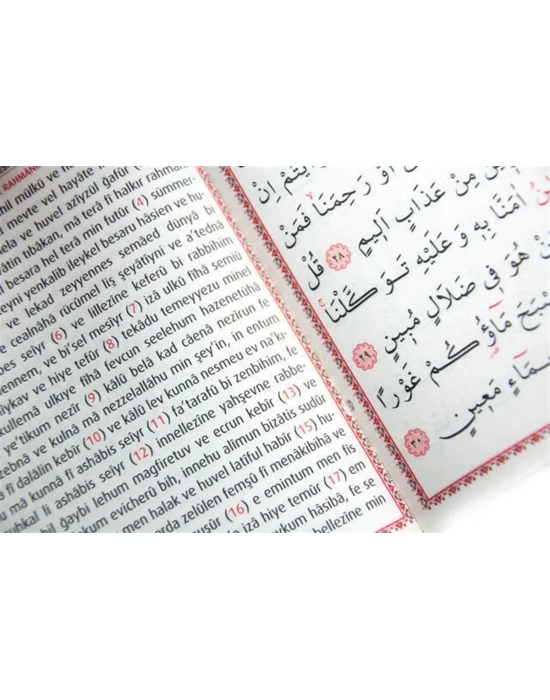 RAHMAN
mülkü ve
meyte vel hayâte
ve huvel azîyzül gafûr
tıbâkan, mâ terâ fî halkır rahmân
besara hel terâ min futûr (4) sümmer-
yenkalib ileykel besaru hâsien ve hu-
ve lekad zeyyennes semâed dünyâ bi
cealnâhâ rücûmel liş şeyâtiyni ve a'tednâ
seıyr (6) ve lillezîne keferû bi rabbihim
ve bi'sel mesîyr (7) izâ ulkû fîhâ semiû
ve hiye tefûr (8) tekâdu temeyyezu minel
kullemâ ulkıye fîhâ fevcun seelehum hazenetühâ
e'tikum nezîr (9) kâlû belâ kad câenâ nezîrun fe
ve kulnâ mâ nezzelallâhu min şey'in, in entum
fî dalâlin kebîr (10) ve kâlû lev kunnâ nesmeu ev na'k-
mâ kunnâ fî ashâbis seiyr (11) fa'tarafû bi zenbihim, fe
li ashâbis seiyr (12) innellezîne yahşevne rabbe-
bil ğaybi lehum mağfiretuv ve ecrun kebîr (13) ve
evicherû bih, innehu alîmun bizâtis sudûr
men halak ve huvel latîful habîr (15) hu-
arda zelûlen femşû fî menâkibihâ ve
(16) e emintum men fis
izâ hiye temûr (17) em
hâsıbâ, fe se
bellezîne min
اَوْ رَحِمَنَا فَمَنْ
مِنْ عَذَابٍ اَلِيمٍ ﴿٢٨﴾ قُلْ
اٰمَنَّا بِه۪ وَعَلَيْهِ تَوَكَّلْنَا
هُوَ ف۪ي ضَلَالٍ مُب۪ينٍ ﴿٢٩﴾
مَٓاؤُ۬كُمْ غَوْرًا
مَع۪ينٍ ﴿٣٠﴾